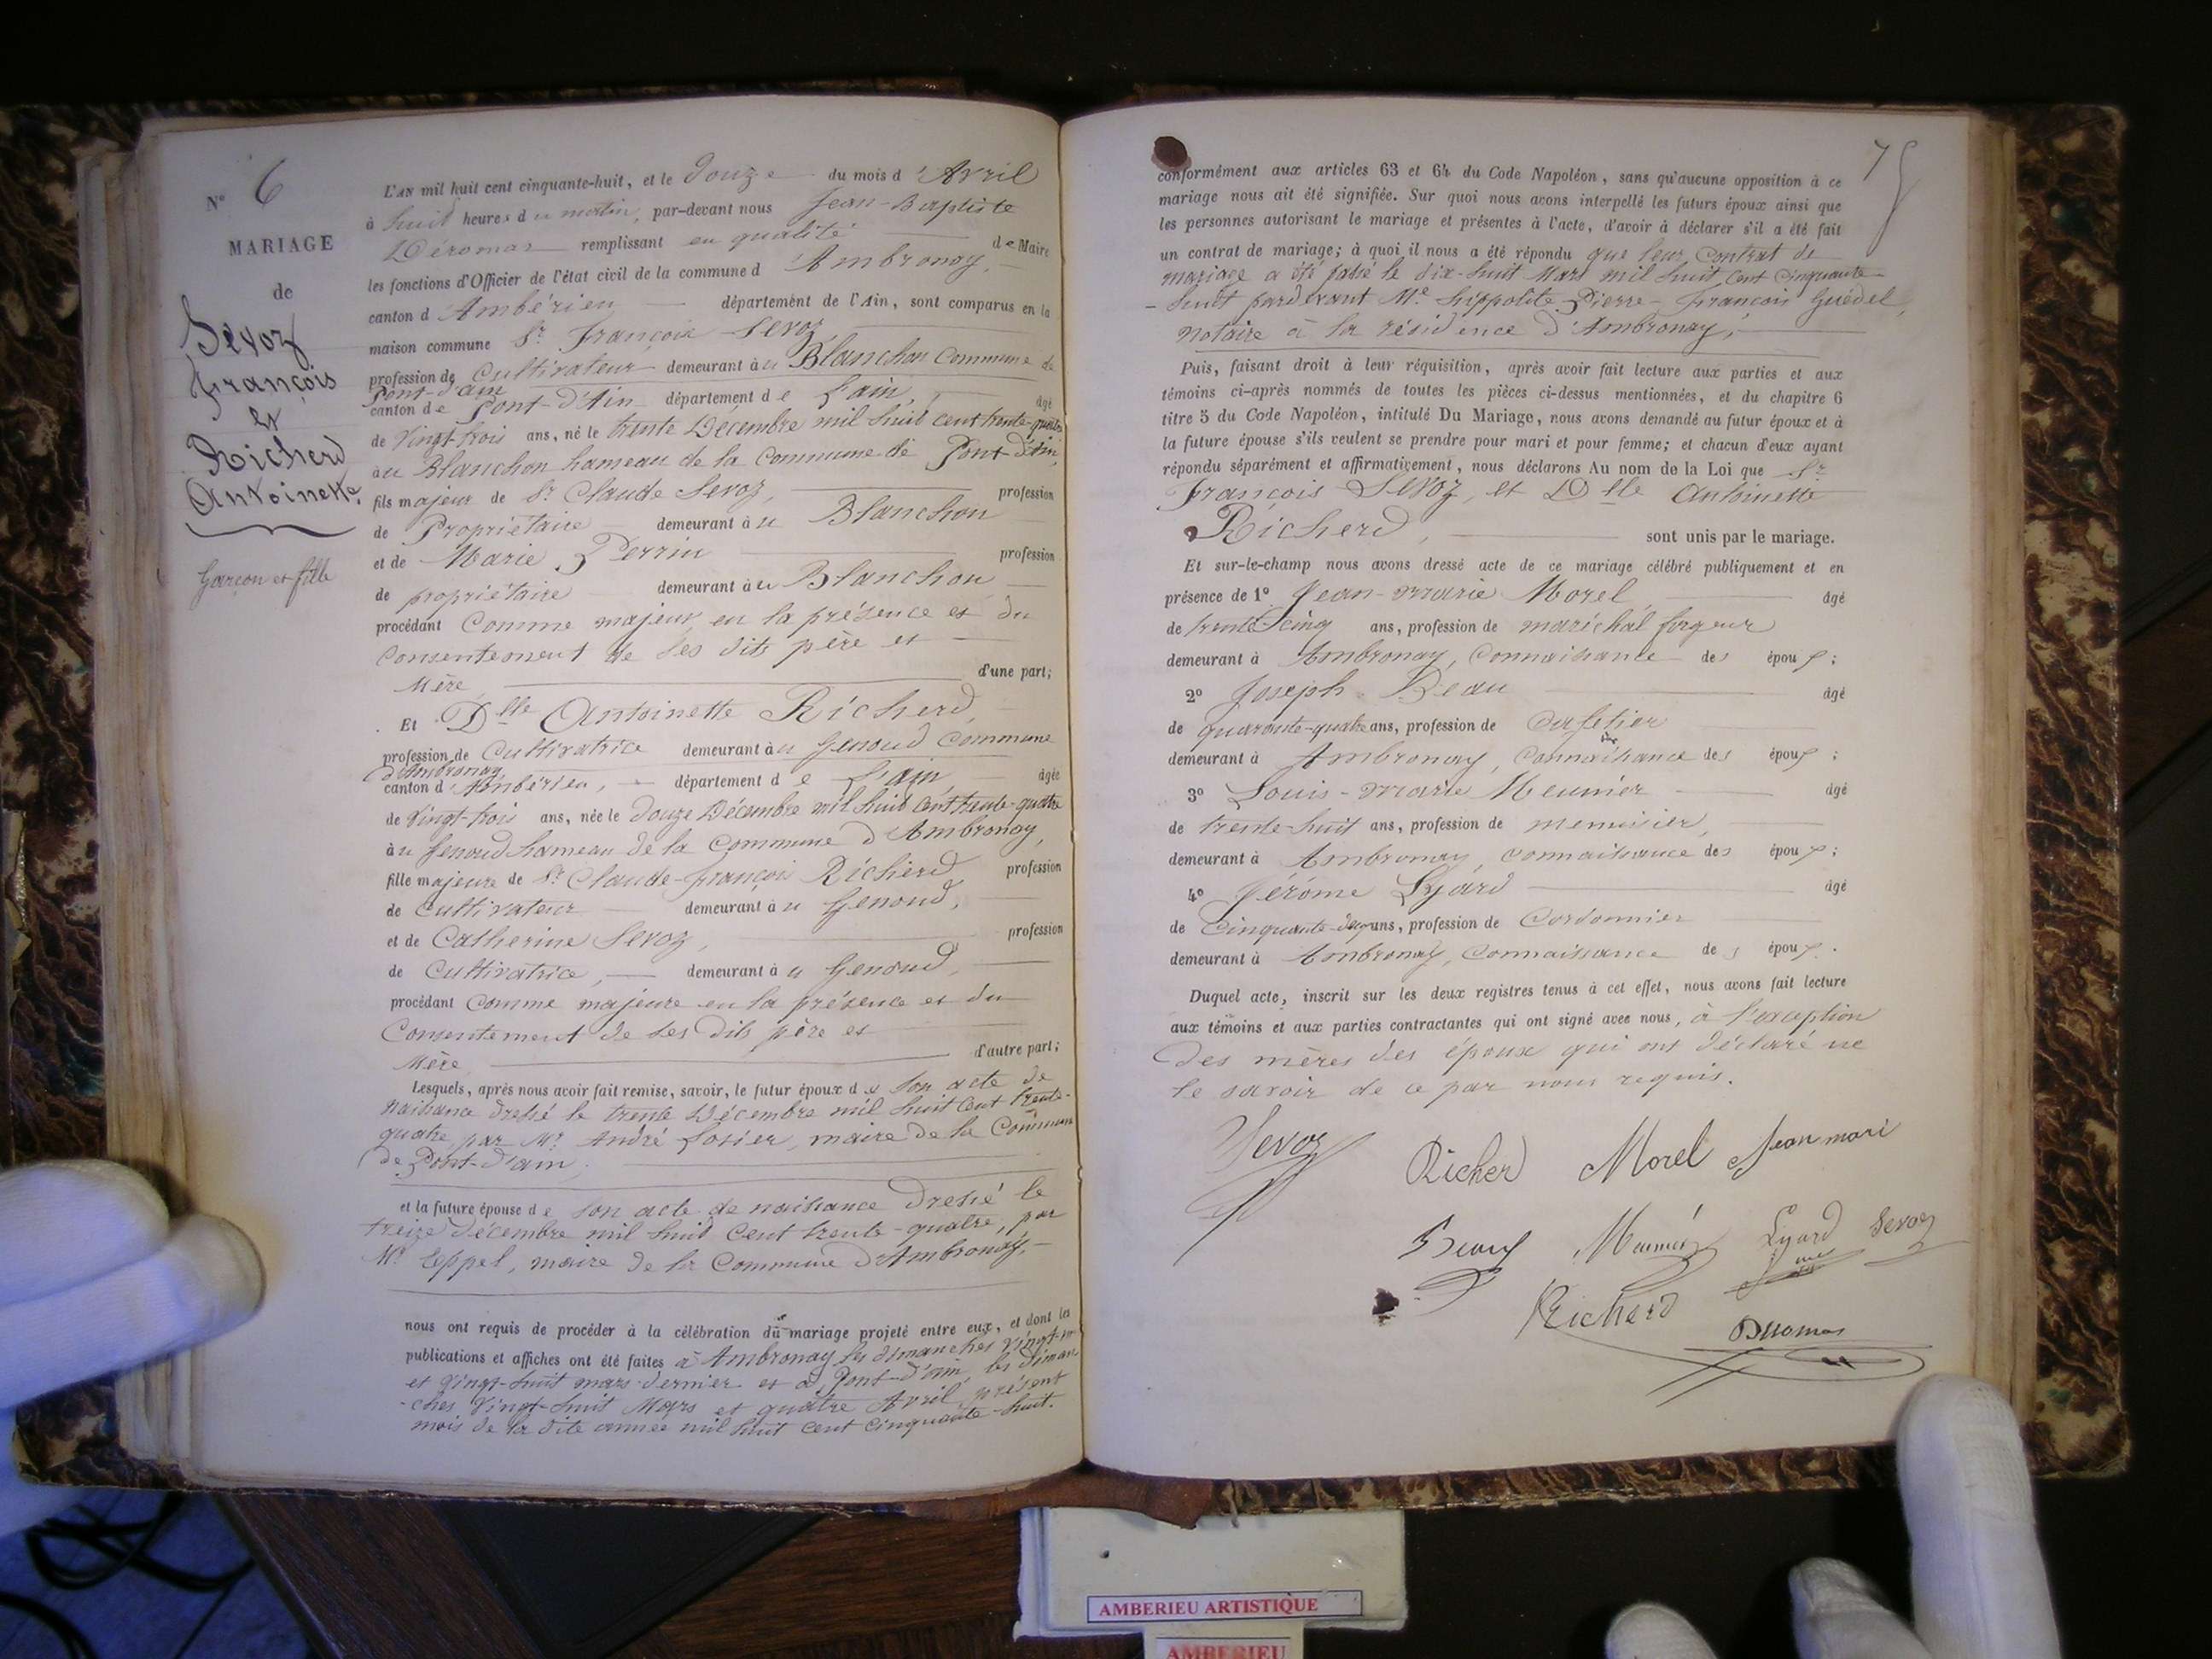 N° 6
MARIAGE
de
Sevoz
François
et
Richerd
Antoinette
Garçon et fille
L'AN mil huit cent cinquante-huit, et le Douze du mois d'Avril
à huit heures du matin, par-devant nous Jean-Baptiste
Déromas remplissant en qualité de Maire
les fonctions d'Officier de l'état civil de la commune d'Ambronay,
canton d'Ambérieu département de l'Ain, sont comparus en la
maison commune Sr. François Sevoz
profession de Cultivateur demeurant au Blanchon Commune de
Pont-d'ain
canton de Pont-d'Ain département de l'ain, âgé
de Vingt-trois ans, né le trente Décembre mil huit cent trente-quatre
au Blanchon hameau de la Commune de Pont-d'Ain,
fils majeur de Sr. Claude Sevoz, profession
de Propriétaire demeurant au Blanchon
et de Marie Perrin profession
de propriétaire demeurant au Blanchon
procédant Comme majeur en la présence et du
Consentement de ses dits père et
Mère d'une part;
Et Dlle Antoinette Richerd,
profession de Cultivatrice demeurant au Genoud Commune
d'Ambronay
canton d'Ambérieu, département de l'ain, âgée
de Vingt-trois ans, née le Douze Décembre mil huit cent trente-quatre
au Genoud hameau de la Commune d'Ambronay,
fille majeure de Sr. Claude-François Richerd, profession
de Cultivateur demeurant au Genoud,
et de Catherine Sevoz, profession
de Cultivatrice, demeurant au Genoud,
procédant Comme majeure en la présence et du
Consentement de ses dits père et
Mère d'autre part;
Lesquels, après nous avoir fait remise, savoir, le futur époux de son acte de
naissance dressé le trente Décembre mil huit cent trente-
quatre par Mr. André Losier, maire de la Commune
de Pont-d'ain;
et la future épouse de son acte de naissance dressé le
treize décembre mil huit cent trente-quatre, par
Mr. Leppel, maire de la Commune d'Ambronay,
nous ont requis de procéder à la célébration du mariage projeté entre eux, et dont les
publications et affiches ont été faites à Ambronay les dimanches Vingt-un
et Vingt-huit mars dernier et à Pont-d'ain, les diman-
-ches Vingt-huit Mars et quatre Avril, présent
mois de la dite année mil huit cent cinquante-huit.
75
conformément aux articles 63 et 64 du Code Napoléon, sans qu'aucune opposition à ce
mariage nous ait été signifiée. Sur quoi nous avons interpellé les futurs époux ainsi que
les personnes autorisant le mariage et présentes à l'acte, d'avoir à déclarer s'il a été fait
un contrat de mariage; à quoi il nous a été répondu que leur Contrat de
mariage a été passé le Dix-huit Mars mil huit cent cinquante-
-huit pardevant Me. hippolite Pierre-François Guédel,
Notaire à la résidence d'Ambronay;
Puis, faisant droit à leur réquisition, après avoir fait lecture aux parties et aux
témoins ci-après nommés de toutes les pièces ci-dessus mentionnées, et du chapitre 6
titre 5 du Code Napoléon, intitulé Du Mariage, nous avons demandé au futur époux et à
la future épouse s'ils veulent se prendre pour mari et pour femme; et chacun d'eux ayant
répondu séparément et affirmativement, nous déclarons Au nom de la Loi que Sr
François Sevoz, et Dlle Antoinette
Richerd, sont unis par le mariage.
Et sur-le-champ nous avons dressé acte de ce mariage célébré publiquement et en
présence de 1° Jean-marie Morel âgé
de trente cinq ans, profession de maréchal forgeur
demeurant à Ambronay, Connaissance des époux;
2° Joseph Beau âgé
de quarante-quatre ans, profession de Cafetier
demeurant à Ambronay, Connaissance des époux;
3° Louis-marie Meunier âgé
de trente-huit ans, profession de menuisier,
demeurant à Ambronay, connaissance des époux;
4° Jérôme Lyard âgé
de Cinquante-deux ans, profession de Cordonnier
demeurant à Ambronay, Connaissance des époux.
Duquel acte, inscrit sur les deux registres tenus à cet effet, nous avons fait lecture
aux témoins et aux parties contractantes qui ont signé avec nous, à l'exception
des mères des époux qui ont déclaré ne
le savoir de ce par nous requis.
Sevoz Richerd Morel Jean mari
Beau Meunier Lyard Sevoz
Richerd
Déromas
AMBERIEU ARTISTIQUE
AMBERIEU